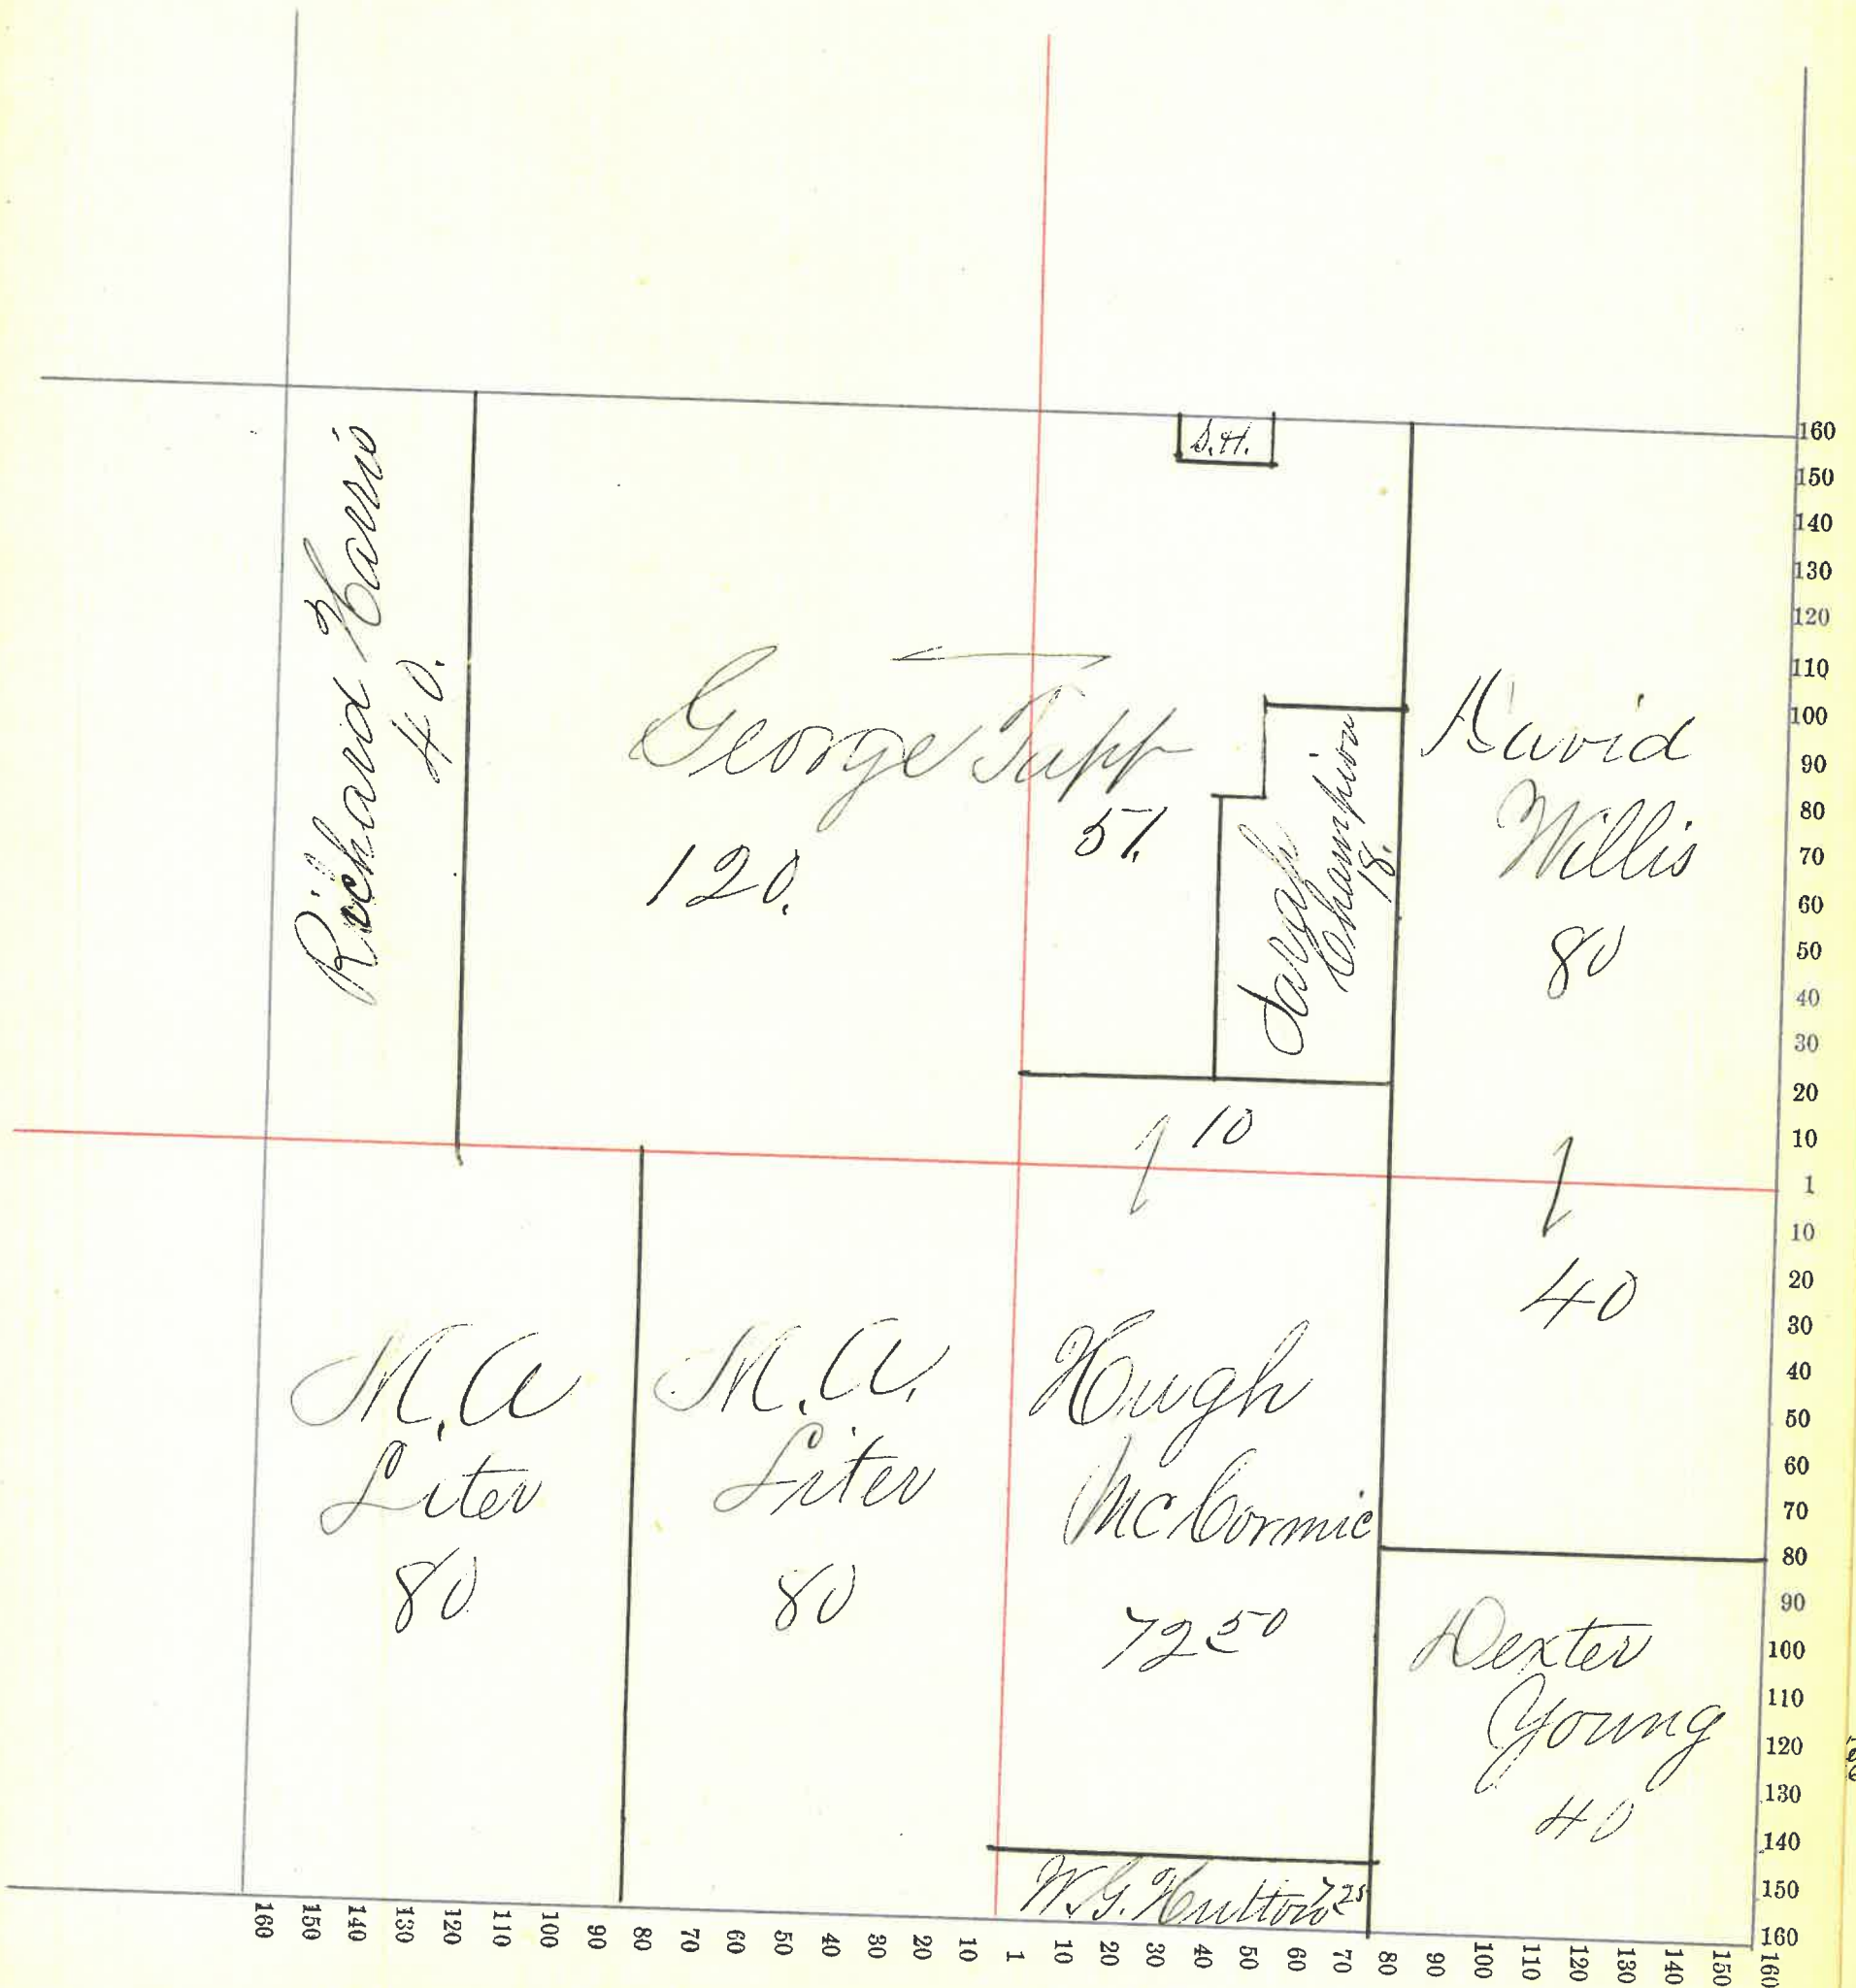 S.H.
Richard Harris
40.
George Tapp
120.
51.
Sarah
Champion
18.
David
Willis
80
10
40
M.A
Liter
80
M.A.
Liter
80
Hugh
McCormic
72 50
Dexter
Young
40
W.G. Hutton 7.25
160
150
140
130
120
110
100
90
80
70
60
50
40
30
20
10
1
10
20
30
40
50
60
70
80
90
100
110
120
130
140
150
160
160 150 140 130 120 110 100 90 80 70 60 50 40 30 20 10 1 10 20 30 40 50 60 70 80 90 100 110 120 130 140 150 160